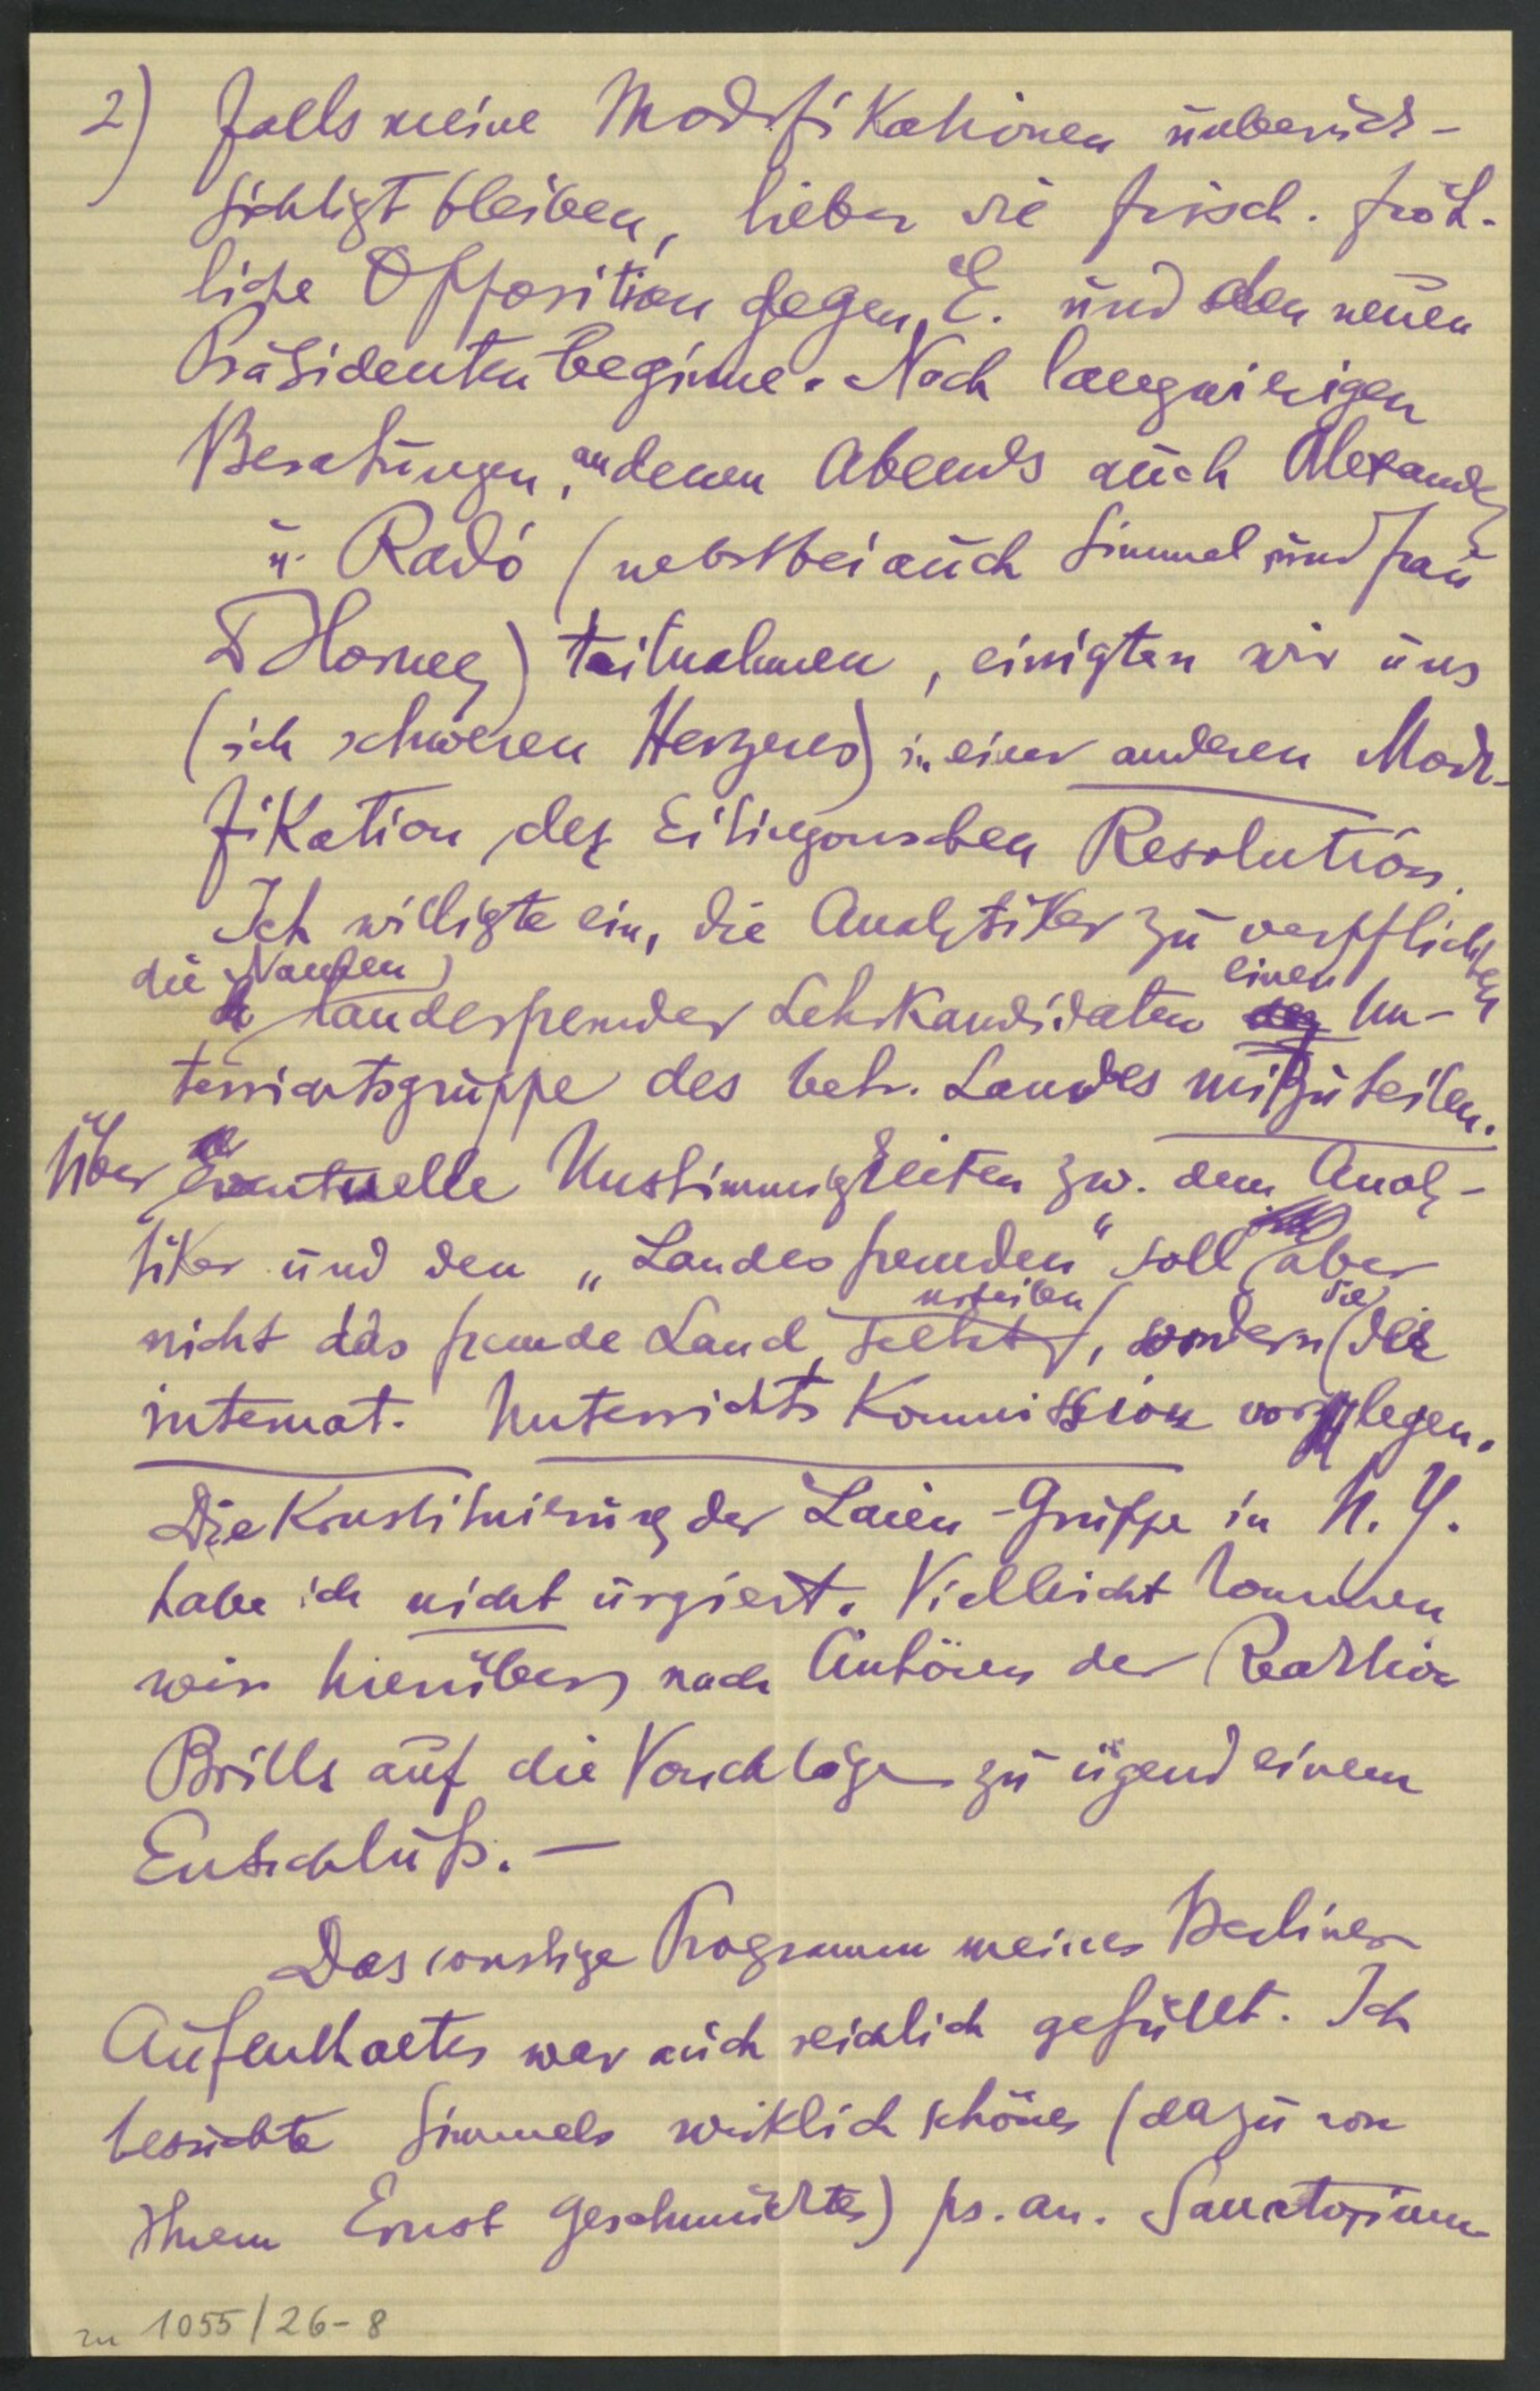 2) Falls meine Modifikationen unberück-
sichtigt bleiben, lieber die frisch-fröh-
liche Opposition gegen E. und den neuen
Präsidenten beginne. Nach langwierigen
Beratungen, an denen Abends auch Alexander
u. Radó (nebstbei auch Simmel und Frau
Dr Horney) teilnahmen, einigten wir uns
(ich schweren Herzens) in einer anderen Modi-
fikation der Eitingonschen Resolution.
Ich willigte ein, die Analytiker zu verpflichten
die Namen
landesfremder Lehrkandidaten einer Un-
terrichtsgruppe des betr. Landes mitzuteilen.
Über eventuelle Unstimmigkeiten zw. dem Analy-
tiker und den „Landesfremden" soll aber
nicht das fremde Land selbst urteilen, sondern die
internat. Unterrichts Kommission vorlegen.
Die Konstituierung der Laien-Gruppe in N.Y.
habe ich nicht urgiert. Vielleicht kommen
wir hierüber, nach Anhören der Reaktion
Brills auf die Vorschläge zu irgend einem
Entschluß. —
Das sonstige Programm meines Berliner
Aufenthaltes war auch reichlich gefüllt. Ich
besuchte Simmels wirklich schönes (dazu von
Ihrem Ernst geschmücktes) ps. an. Sanatorium
zu 1055/26-8